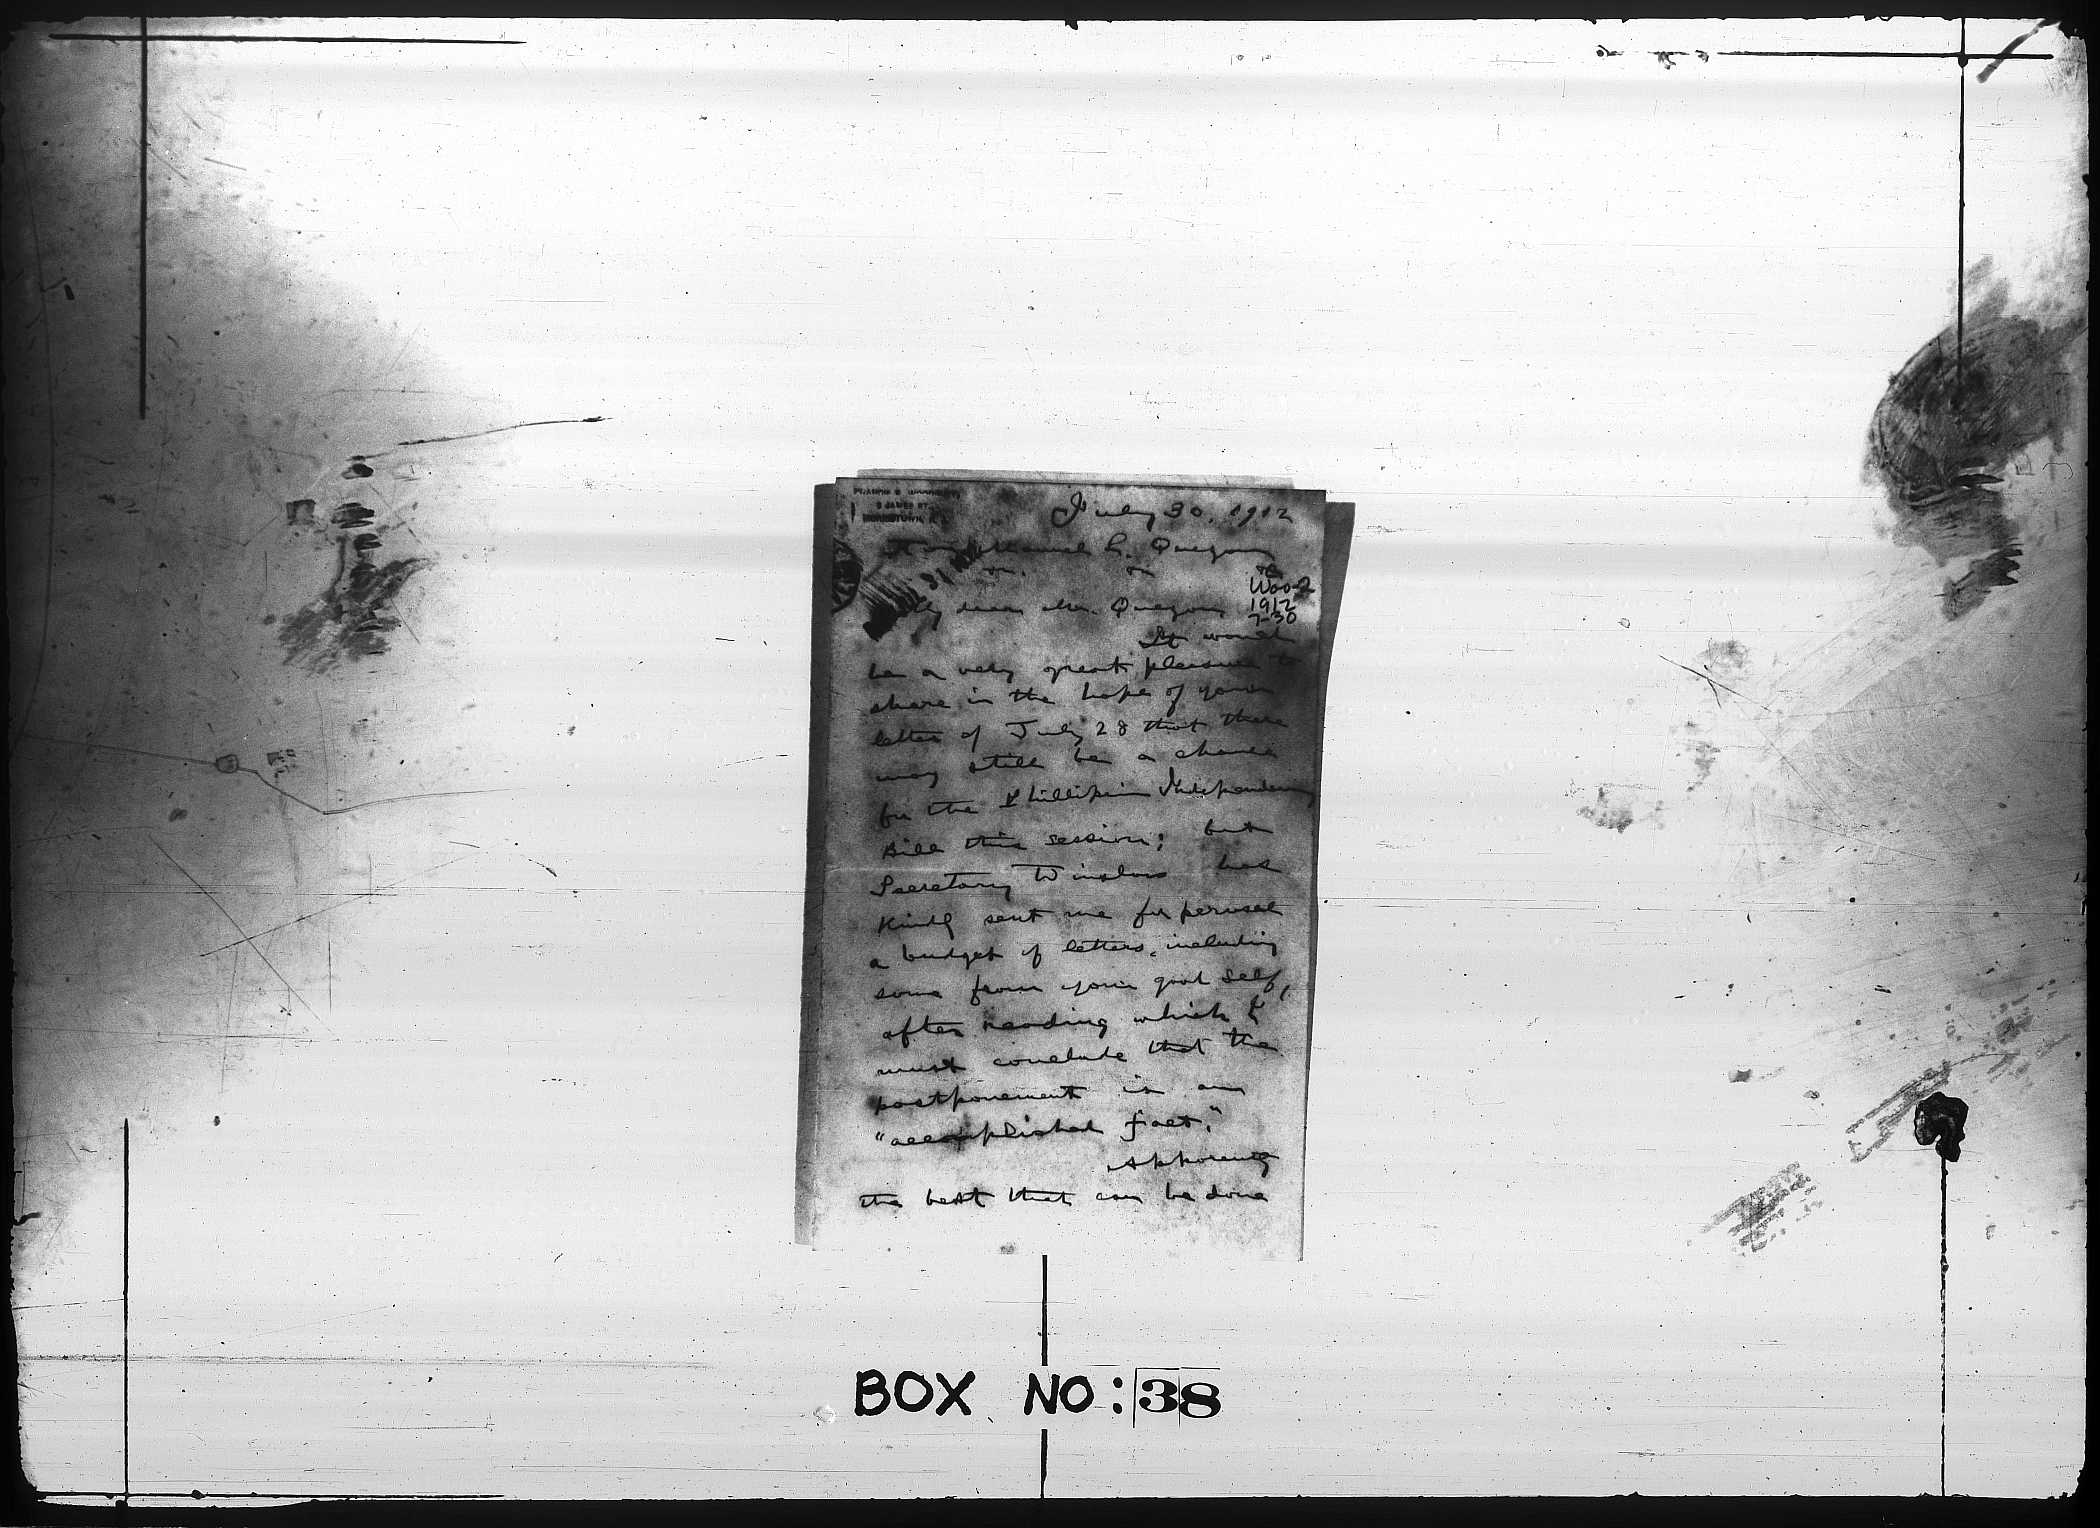 FRANCIS B
5 JAMES ST
MORRISTOWN, N.J.
July 30, 1912
Hon. Manuel L. Quezon
Woo-2
1912
7-30
My dear Mr. Quezon
It would
be a very great pleasure to
share in the hope of your
letter of July 28 that there
may still be a chance
for the Phillipine Independence
Bill this session; but
Secretary Winslow has
kindly sent me for perusal
a budget of letters, including
some from your good self,
after reading which I
must conclude that the
postponement is an
"accomplished fact."
Apparently
the best that can be done
BOX NO: 38